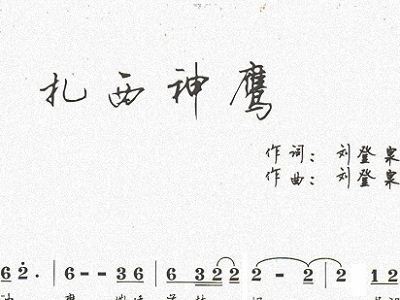 扎西神鹰
作词：刘登泉
作曲：刘登泉
6 2· | 6 - - 3 6 | 6 3 2 2 | 2 - 2 | 2 1 2